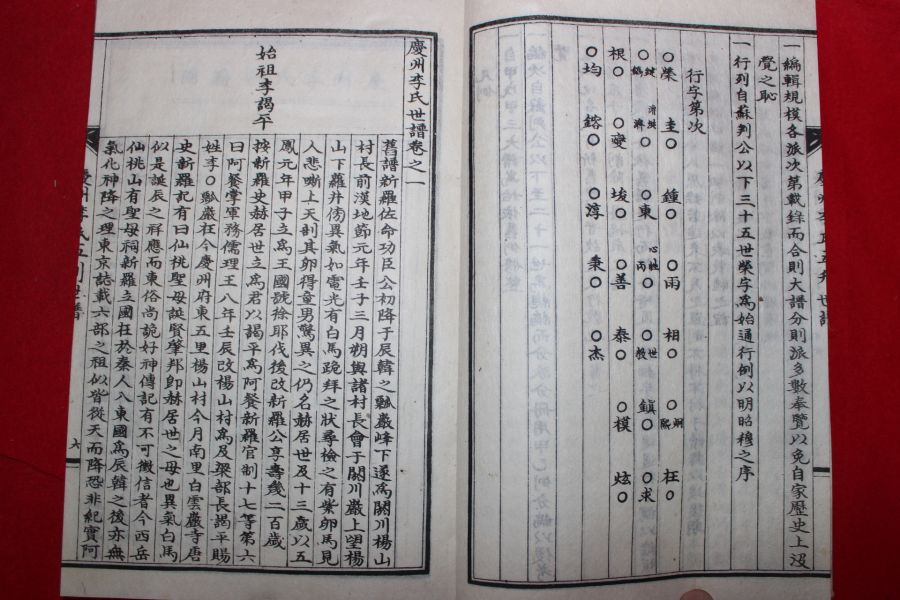 一編輯規模各派次第載錄而合則大譜分則派多數奉覽以免自家歷史上沒
覺之恥
一行列自蘇判公以下三十五世榮字爲始通行例以明昭穆之序
行字第次
○榮 圭○ ○鍾 ○雨 相○ ○熙 ○在
○鎬 濟○ ○東 丙○ ○教 世 鎭○ ○求
根○ ○燮 埈○ ○善 泰○ ○模 炫○
○均 鎔○ ○淳 秉○ ○杰
慶州李氏世譜卷之一
始祖李謁平
舊譜新羅佐命功臣公初降于辰韓之瓢巖峰下遂爲閼川楊山
村長前漢地節元年壬子三月朔與諸村長會于閼川巖上望楊
山下蘿井傍異氣如電光有白馬跪拜之狀尋檢之有紫卵馬見
人悲嘶上天剖其卵得童男驚異之仍名赫居世及十三歲以五
鳳元年甲子立爲王國號徐耶伐後改新羅公享壽幾二百歲
按新羅史赫居世立爲君以謁平爲阿餐新羅官制十七等第六
曰阿餐掌軍務儒理王八年壬辰改楊山村爲及梁部長謁平賜
姓李○瓢巖在今慶州府東五里楊山村今月南里白雲巖寺唐
史新羅記有曰仙桃聖母誕賢肇邦卽赫居世之母也異氣白馬
似是誕辰之祥應而東俗尚詭好神傳記有不可徵信者今西岳
仙桃山有聖母祠新羅立國在於秦人入東國爲辰韓之後亦無
氣化神降之理東京誌載六部之祖似皆從天而降恐非紀實阿
六